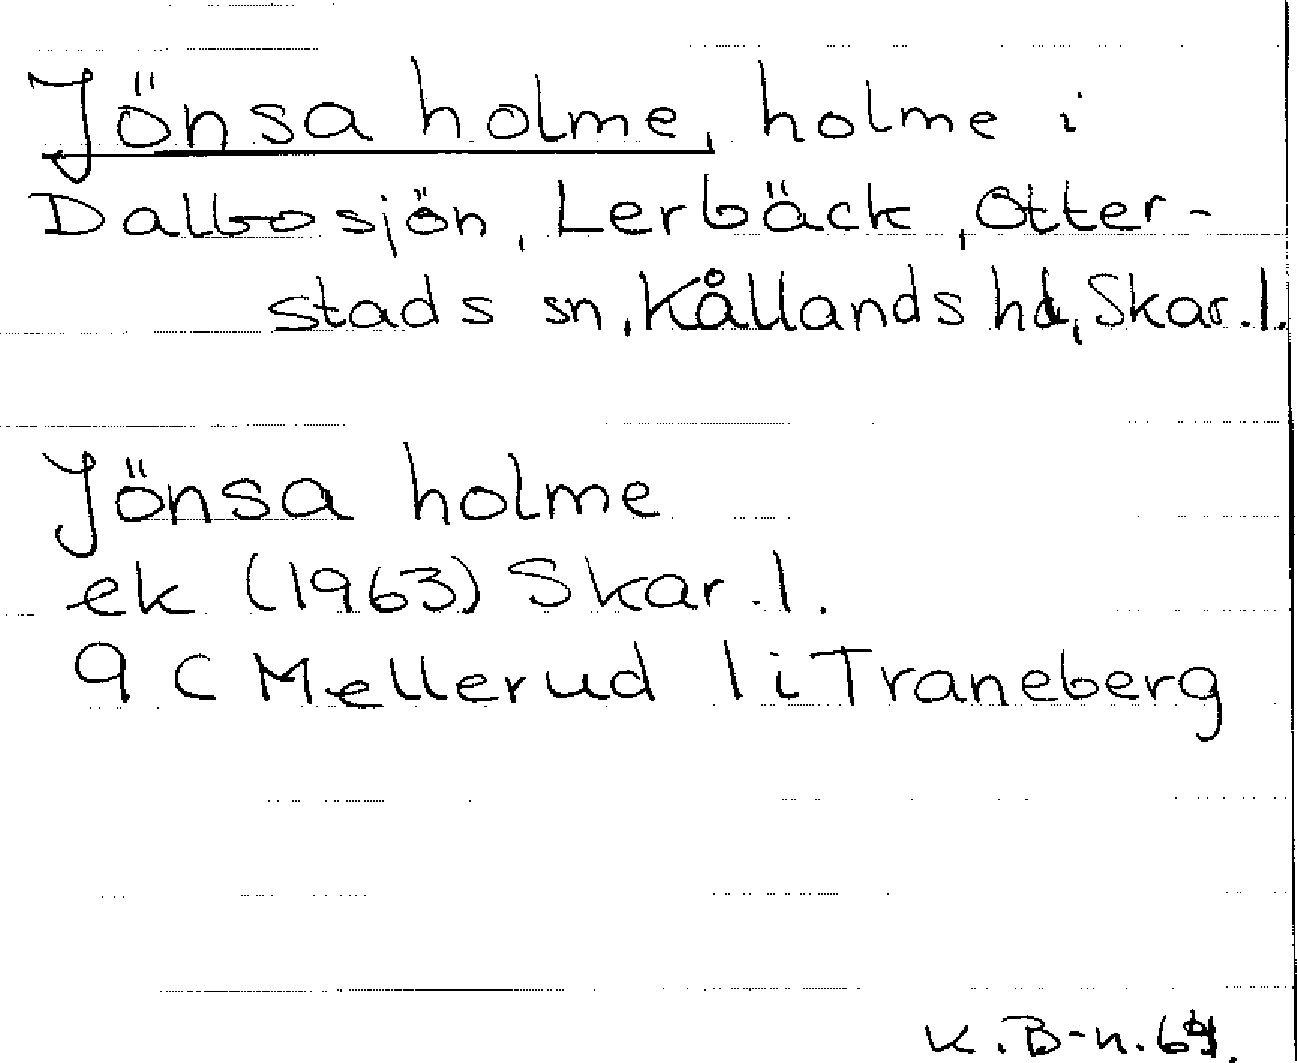 Jönsa holme, holme i
Dalbosjön, Lerbäck, Otter-
stads sn, Kållands hd, Skar. l.
Jönsa holme
ek (1963) Skar. l.
9 C Mellerud 1 i Traneberg
K. B-n.